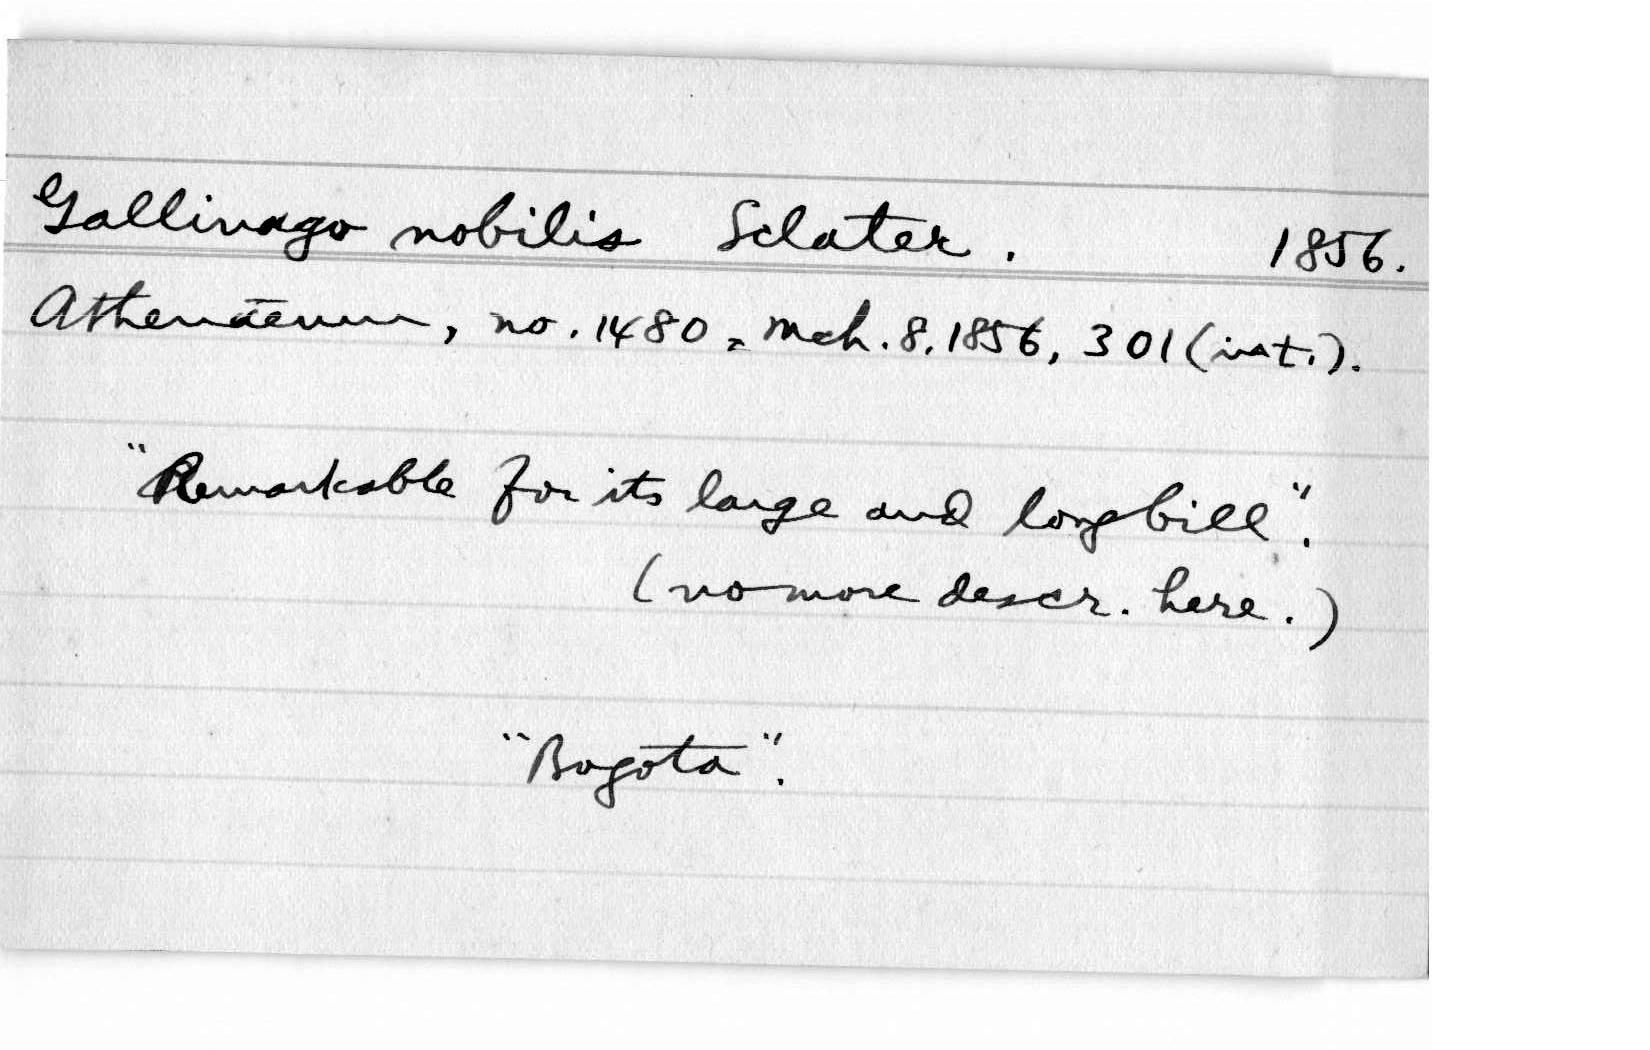 Gallinago nobilis Sclater. 1856.
Athenaeum, no. 1480, Mch. 8, 1856, 301 (int.).
"Remarkable for its large and long bill".
(no more descr. here.)
"Bogota".